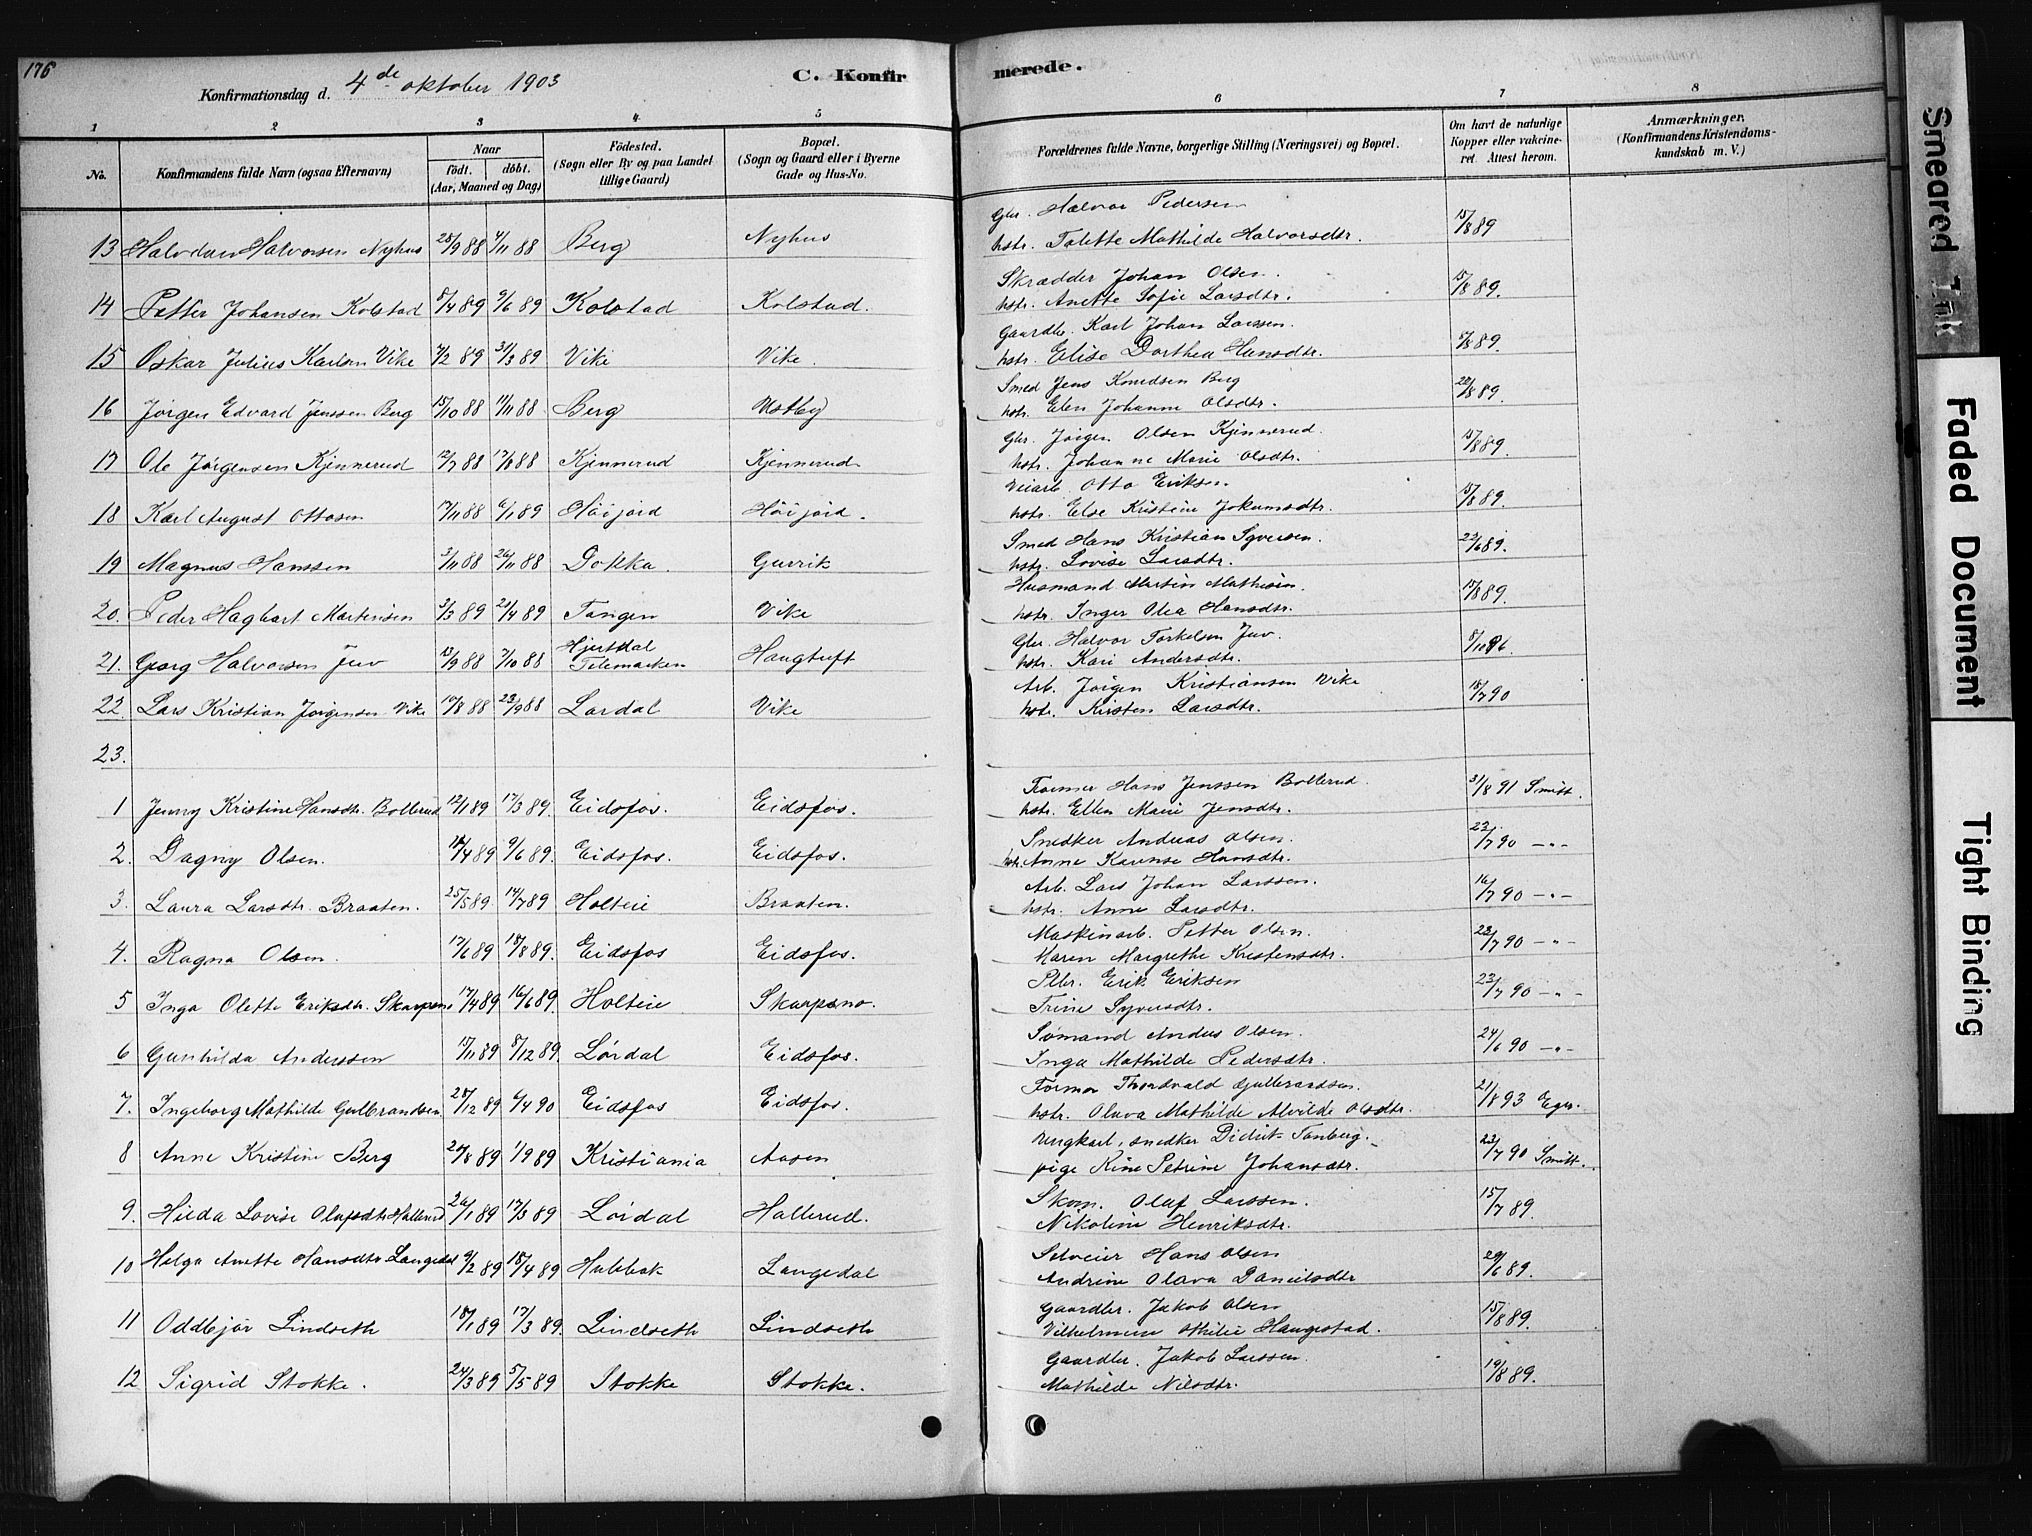 176
C. Konfirmerede.
Konfirmationsdag d. 4de oktober 1903
1 2 3 4 5 6 7 8
No. Konfirmandens fulde Navn (ogsaa Efternavn) Naar födt. döbt. (Aar, Maaned og Dag) Födested. (Sogn eller By og paa Landet tillige Gaard) Bopæl. (Sogn og Gaard eller i Byerne Gade og Hus-No. Forældrenes fulde Navne, borgerlige Stilling (Næringsvei) og Bopæl. Om havt de naturlige Kopper eller vakcineret. Attest herom. Anmærkninger. (Konfirmandens Kristendomskundskab m. V.)
13 Halvdan Halvorsen Nyhus 28/9 88 4/11 88 Berg Nyhus Gbr. Halvor Pedersen 15/8 89
hstr. Talette Mathilde Halvorsdtr.
14 Petter Johansen Kolstad 8/4 89 9/6 89 Kolstad Kolstad. Skrædder Johan Olsen. 15/8 89.
hstr. Anette Sofie Larsdtr.
15 Oskar Julius Karlsen Vike 7/2 89 31/3 89 Vike Vike. Gaardbr. Karl Johan Larssen. 89.
hstr. Elise Dorthea Hansdtr.
16 Jørgen Edvard Jenssen Berg 15/10 88 11/11 88 Berg Østby Smed Jens Knudsen Berg 22/8 89.
hstr. Elen Johanne Olsdtr.
17 Ole Jørgensen Kjennerud 12/7 88 88 Kjennerud Kjennerud Gbr. Jørgen Olsen Kjennerud. 15/8 89.
hstr. Johanne Marie Olsdtr.
18 Karl August Ottosen 17/11 88 6/1 89 Höijord Höijord. Veiarb. Otto Eriksen. 15/8 89.
hstr. Else Kristine Jokumsdtr.
19 Magnus Hanssen 3/11 88 26/11 88 Dokka. Gurrik Smed Hans Kristian Syversen. 22/6 89.
hstr. Lovise Larsdtr.
20. Peder Hagbart Martinsen 3/3 89 21/4 89 Tangen Vike Husmand Martin Mathisen. 15/8 89.
hstr. Inger Olea Hansdtr.
21. Georg Halvorsen Juv 13/9 88 7/10 88 Hjertdal Telemarken Haugtuft Gbr. Halvor Torkelsen Juv. 8/10 96.
hstr. Kari Andersdtr.
22. Lars Kristian Jørgensen Vike 19/8 88 23/9 88 Lardal Vike Arb. Jørgen Kristiansen Vike 18/7 90
hstr. Kirsten Larsdtr.
23.
1 Jenny Kristine Hansdtr. Bollerud 12/1 89 17/3 89. Eidsfos. Eidsfos. Former Hans Jenssen Bollerud. 31/8 91 Smitt.
hstr. Ellen Marie Jensdtr.
2. Dagny Olsen. 18/4 89 9/6 89. Eidsfos. Eidsfos. Snedker Andreas Olsen. 23/7 90 -"-
hstr. Anne Karense Hansdtr.
3. Laura Larsdtr. Braaten. 25/5 89. 14/7 89 Holteie Braaten. Arb. Lars Johan Larssen. 16/7 90 -"-
hstr. Anne Larsdtr.
4. Ragna Olsen. 17/6 89 18/8 89. Eidsfos Eidsfos. Maskinarb. Petter Olsen. 23/7 90 -"-
Karen Margrethe Kristensdtr.
5 Inga Olette Eriksdtr. Skarpsno 17/4 89 16/6 89. Holteie Skarpsno. Plbr. Erik Eriksen 23/7 90 -"-
Trine Syversdtr.
6 Gunhilda Anderssen 17/11 89 8/12 89. Lørdal Eidsfos. Sømand Anders Olsen. 24/6 90 -"-
Inga Mathilde Pedersdtr.
7. Ingeborg Mathilde Gulbrandsen 28/12 89 6/4 90 Eidsfos Eidsfos. Former Thordvald Gulbrandsen. 21/8 93 Eger.
hstr. Olava Mathilde Alvilde Olsdtr.
8 Anne Kristine Berg 29/8 89 1/9 89 Kristiania Aasen Ungkarl, snedker Didrik Tanberg. 23/7 90 Smitt.
pige Rine Petrine Johansdtr.
9. Hilda Lovise Olafsdtr Hallerud 26/1 89 17/3 89 Lørdal Hallerud. Skom. Olaf Larssen. 15/7 89.
Nikoline Henriksdtr.
10 Helga Anette Hansdtr Langedal 9/2 89 18/4 89 Hulebak Langedal Selveier Hans Olsen 29/6 89.
Andrine Olava Danielsdtr
11 Oddbjør Lindseth 18/1 89 17/3 89. Lindseth Lindseth Gaardbr. Jakob Olsen 15/8 89.
Vilhelmine Othilie Haugestad.
12 Sigrid Stokke. 24/3 89 5/5 89 Stokke Stokke. Gaardbr. Jakob Larssen. 19/8 89.
Mathilde Nilsdtr.
Smeared Ink
Faded Document
Tight Binding